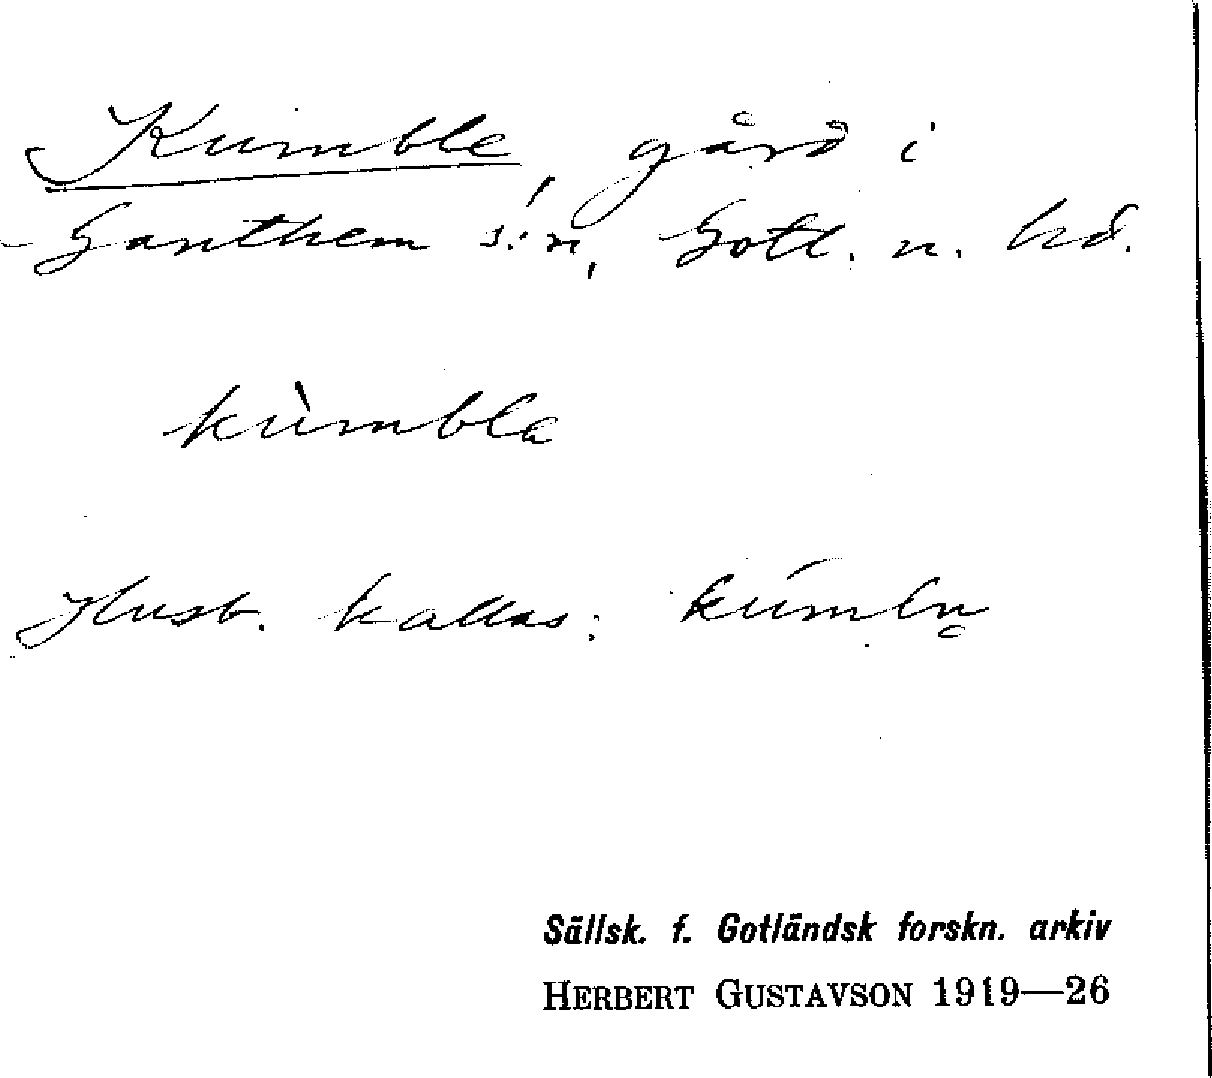 Kumble, gård i
Ganthem s:n, Gotl. n. hd.
kùmbla
Husb. kallas: kúmbn̥
Sällsk. f. Gotländsk forskn. arkiv
HERBERT GUSTAVSON 1919—26